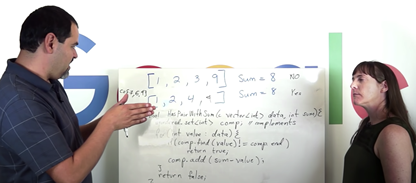 Google
[1, 2, 3, 9] Sum = 8 NO
[1, 2, 4, 4] Sum = 8 Yes
HasPairWithSum(c vector<int> data, int sum){
set<int> comp; // complements
(int value: data){
(comp.find(value) != comp.end)
return true;
comp.add(sum-value);
}
return false;